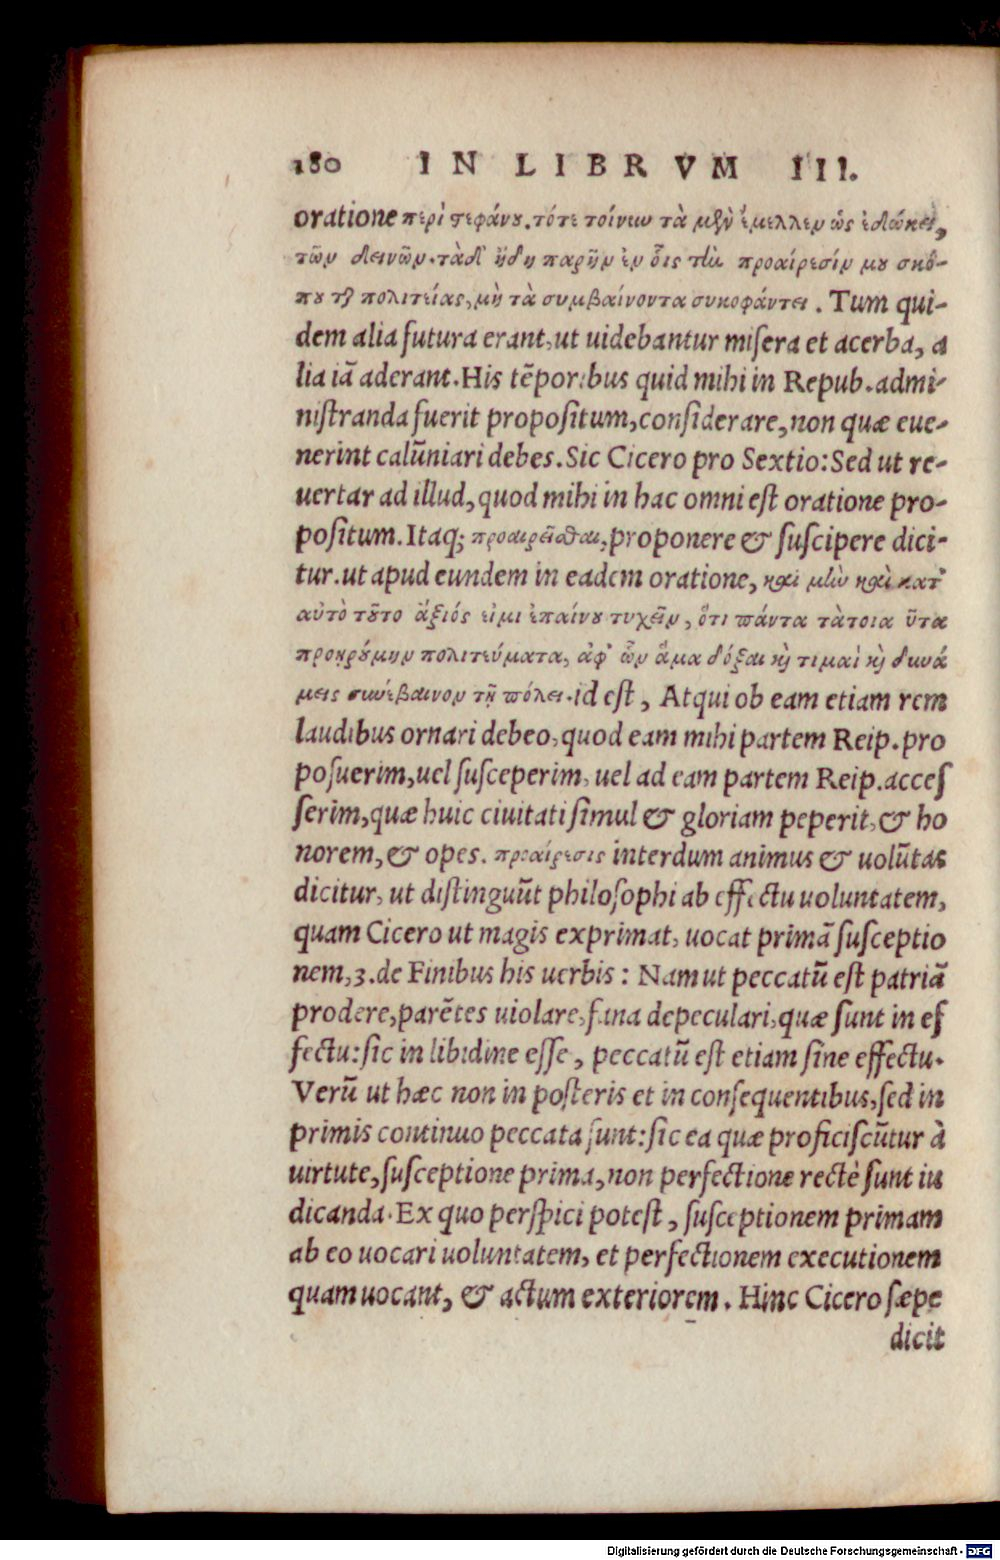 180 IN LIBRVM III.
oratione περὶ στεφάνου. τότε τοίνυν τὰ μὲν ἔμελλεν ὡς ἐδόκει,
τῶν δεινῶν. τὰ δ' ἤδη παρῆν ἐν οἷς τὴν προαίρεσίν μου σκό-
που τῆς πολιτείας, μὴ τὰ συμβαίνοντα συκοφάντει. Tum qui-
dem alia futura erant, ut uidebantur misera et acerba, a
lia iā aderant. His tēporibus quid mihi in Repub. admi-
nistranda fuerit propositum, considerare, non quæ eue-
nerint calūniari debes. Sic Cicero pro Sextio: Sed ut re-
uertar ad illud, quod mihi in hac omni est oratione pro-
positum. Itaq; προαιρεῖσθαι, proponere & suscipere dici-
tur. ut apud eundem in eadem oratione, καὶ μὴν καὶ κατ'
αὐτὸ τοῦτο ἄξιός εἰμι ἐπαίνου τυχεῖν, ὅτι πάντα τὰ τοιαῦτα
προῃρούμην πολιτεύματα, ἀφ' ὧν ἅμα δόξαι καὶ τιμαὶ καὶ δυνά
μεις συνέβαινον τῇ πόλει. id est, Atqui ob eam etiam rem
laudibus ornari debeo, quod eam mihi partem Reip. pro
posuerim, uel susceperim, uel ad eam partem Reip. acces
serim, quæ huic ciuitati simul & gloriam peperit, & ho
norem, & opes. προαίρεσις interdum animus & uolūtas
dicitur, ut distinguūt philosophi ab effectu uoluntatem,
quam Cicero ut magis exprimat, uocat primā susceptio
nem, 3. de Finibus his uerbis: Nam ut peccatū est patriā
prodere, parētes uiolare, fana depeculari, quæ sunt in ef
fectu: sic in libidine esse, peccatū est etiam sine effectu.
Verū ut hæc non in posteris et in consequentibus, sed in
primis continuo peccata sunt: sic ea quæ proficiscūtur à
uirtute, susceptione prima, non perfectione rectè sunt iu
dicanda. Ex quo perspici potest, susceptionem primam
ab eo uocari uoluntatem, et perfectionem executionem
quam uocant, & actum exteriorem. Hinc Cicero sæpe
dicit
Digitalisierung gefördert durch die Deutsche Forschungsgemeinschaft - DFG